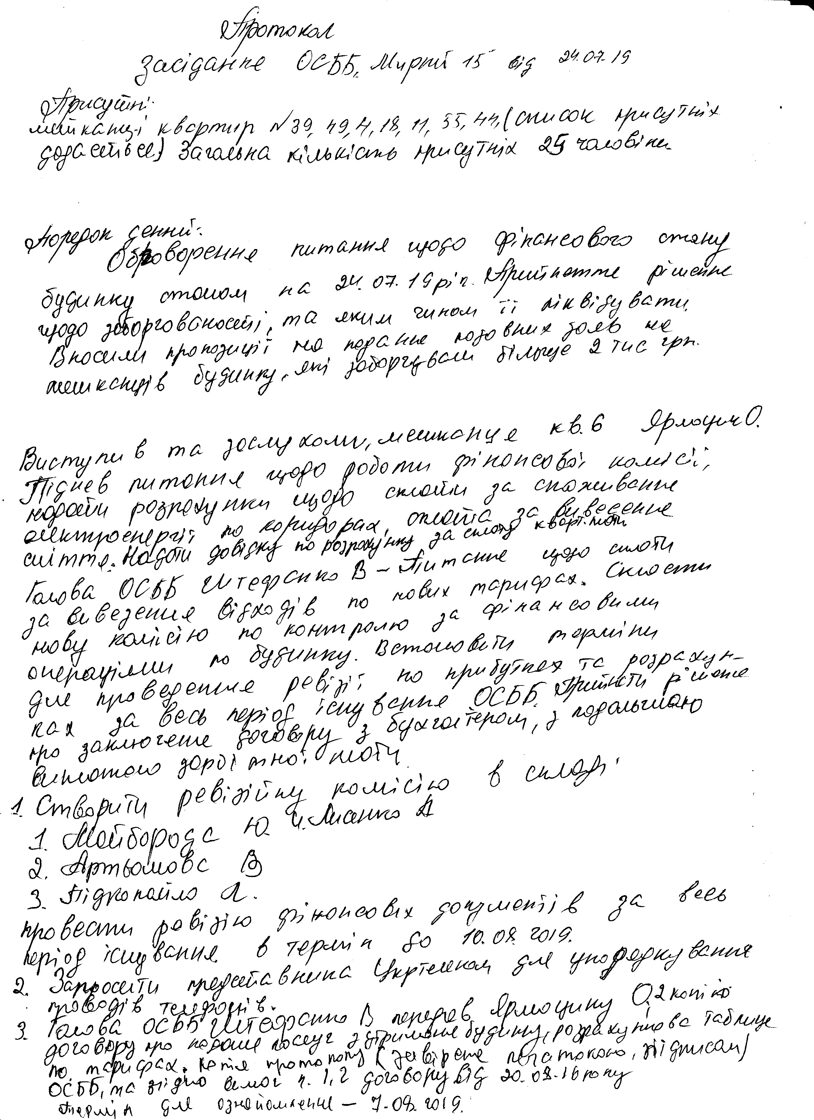 Протокол
Засідання ОСББ, Мирний 15 від 24.07.19
Присутні:
мешканці квартир №39, 49, 4, 18, 11, 35, 44, (список присутніх
додається) Загальна кількість присутніх 25 чоловіки
Порядок денний:
Обговорення питання щодо фінансового стану
будинку станом на 24.07.19 рік. Прийняття рішення
щодо заборгованості, та яким чином її ліквідувати.
Вносили пропозиції на подання позовних заяв на
мешканців будинку, які заборгували більше 2 тис грн.
Виступив та заслухали, мешканця кв. 6 Ярмощук О.
Підняв питання щодо роботи фінансової комісії,
надати розрахунки щодо сплати за споживання
електроенергії по коридорах, оплата за вивезення
сміття. Надати довідку по розрахунку за сплату квартплати
Голова ОСББ Штефанко В – Питання щодо сплати
за вивезення відходів по нових тарифах. Скласти
нову комісію по контролю за фінансовими
операціями по будинку. Встановити терміни
для проведення ревізії по прибутках та розрахун-
ках за весь період існування ОСББ. Прийняти рішення
про заключення договору з бухгалтером, з подальшою
виплатою заробітної плати.
1. Створити ревізійну комісію в складі:
1. Майборода Ю.
2. Артьомова В
3. Підкопайло Л.
провести ревізію фінансових документів за весь
період існування в термін до 10.08.2019.
2. Запросити представника Укртелеком для упорядкування
проводів телефонів.
3. Голова ОСББ Штефанко В передав Ярмощуку О, 2 копії
договору про надання послуг з утримання будинку, розрахункова таблиця
по тарифах. Копія протоколу (завірена печаткою, підписом)
ОСББ, та згідно вимог п. 1, 2 договору від 20.08.16 року
Термін для ознайомлення – 7.08.2019.